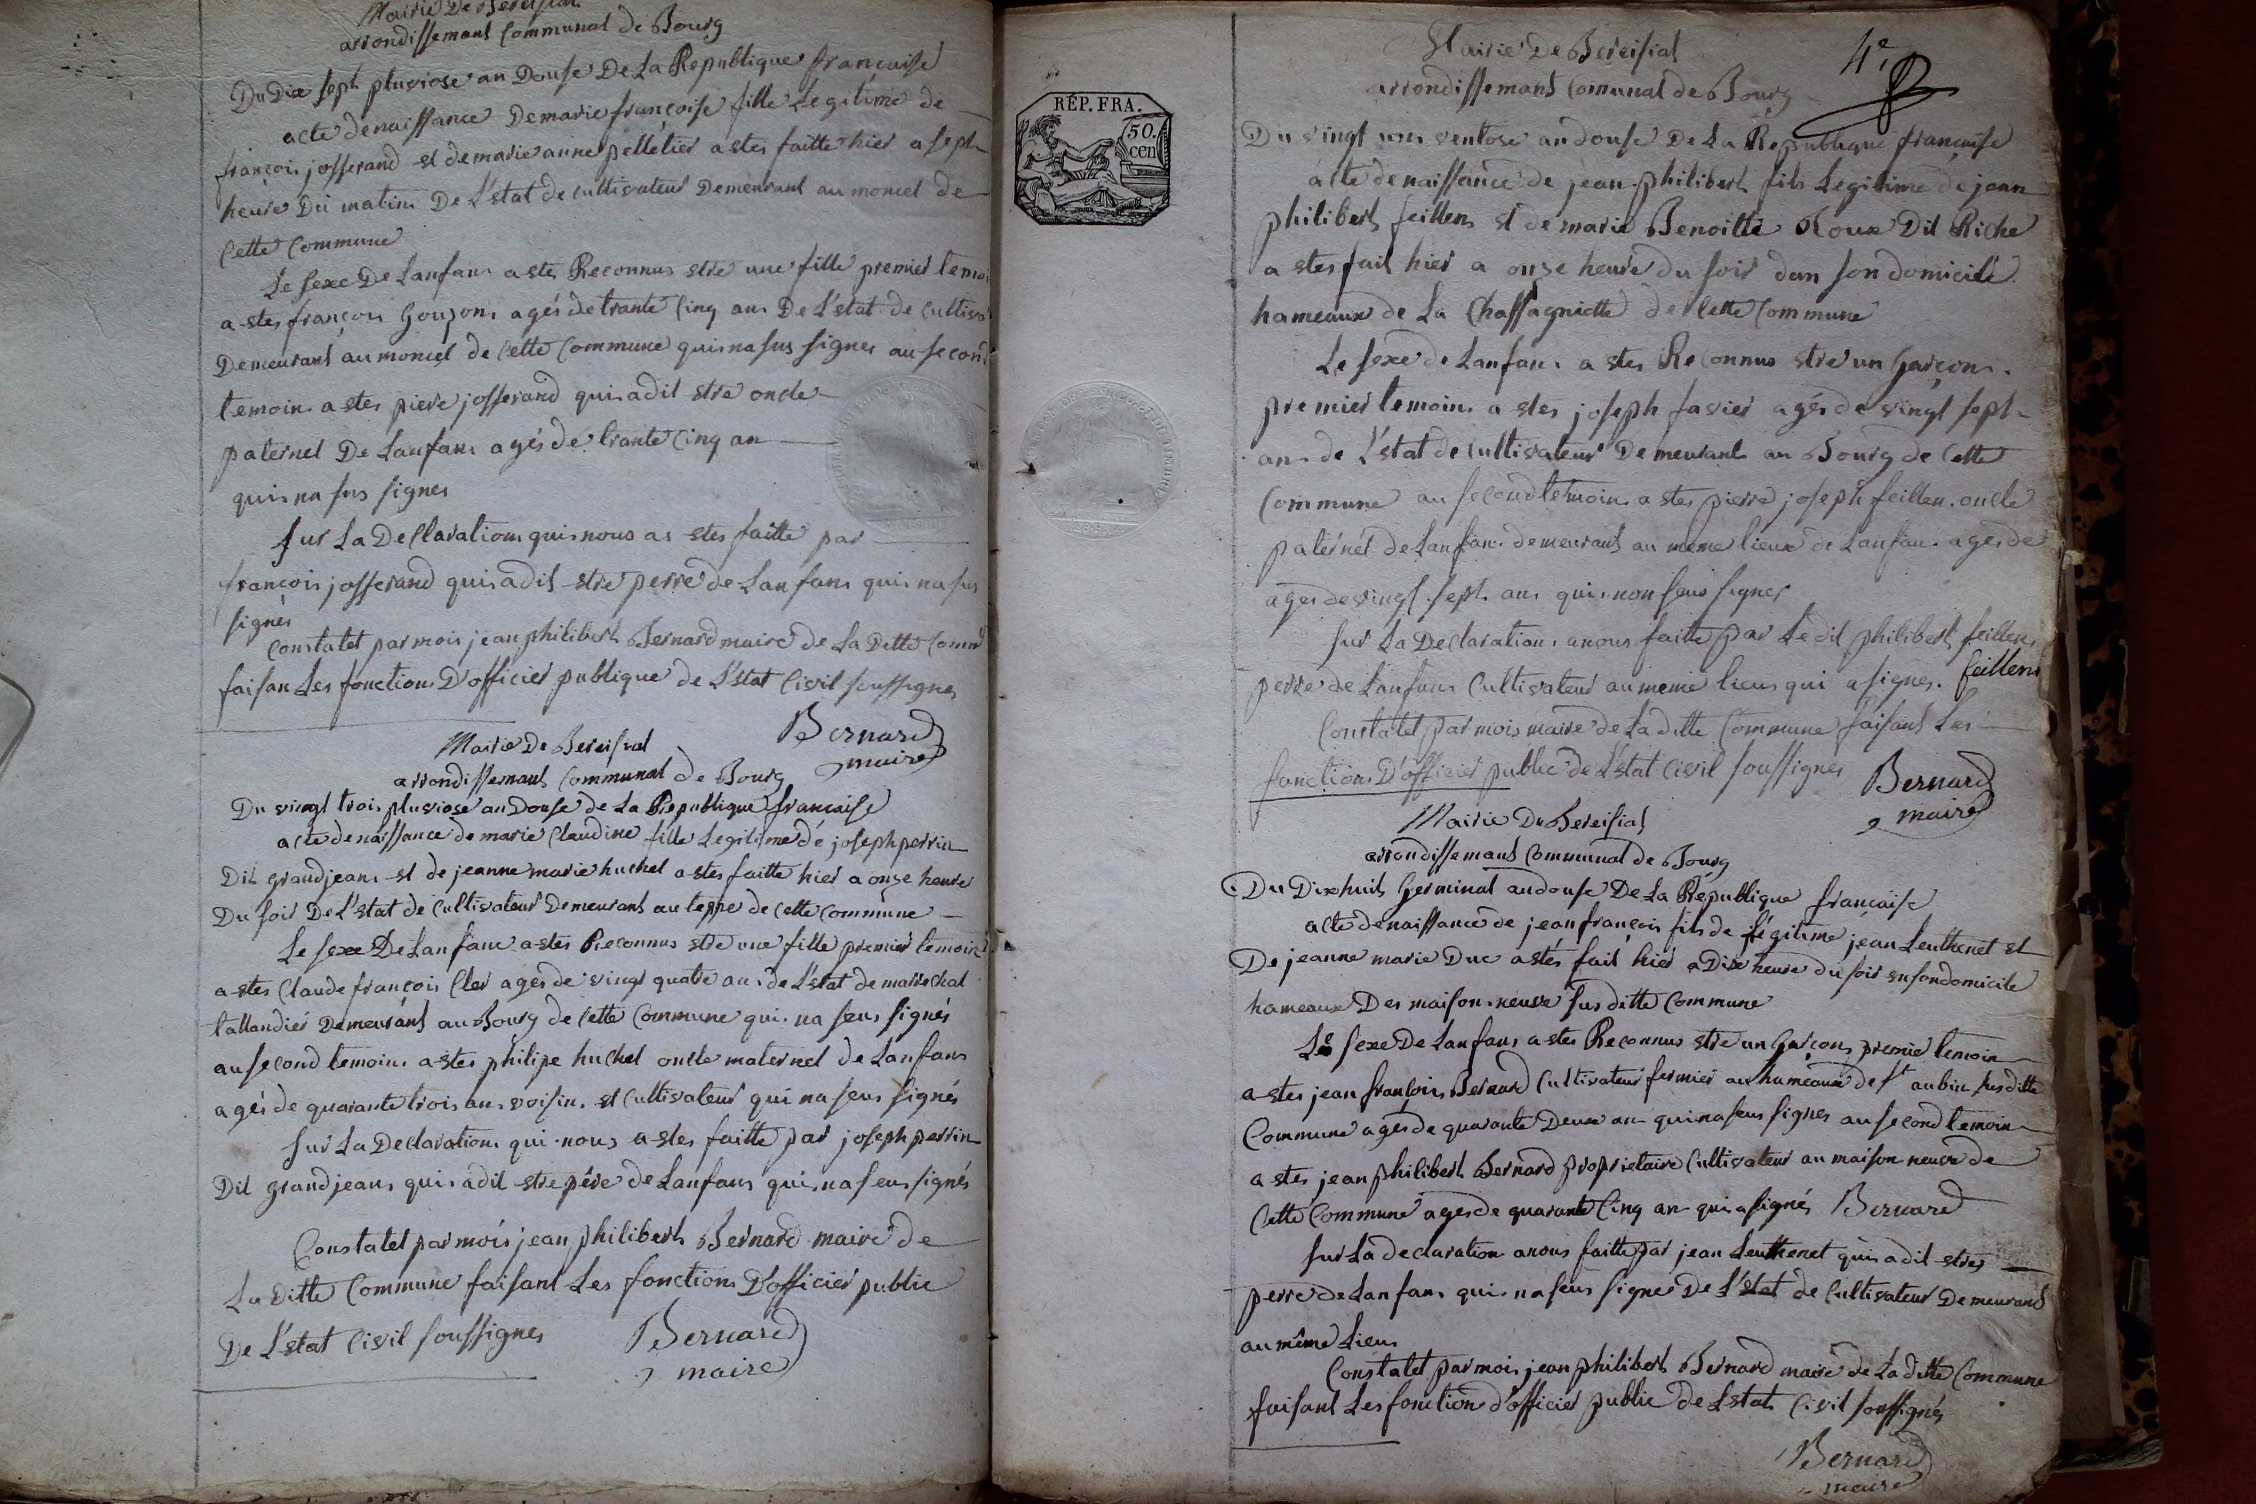 Mairie De Bereisiat
arrondissemant Communal de Bourg
Du Dix sept pluviose an Douse De La Republique francaise
acte denaissance Demarie françoise fille Legitime de
françois josserand et demarie anne pelletier a stes faitte hier a sept
heure Du matin De L'stat de cultivateur Demeurant au moncel de
Cette Commune
Le sexe De Lanfan a stes Reconnus stre une fille premier temoi
a stes françois Goujon agés detrante Cinq an De L'stat de Cultiva
Demeurant au moncel de Cette Commune qui na sus signer au second
temoin a stes piere josserand qui adit stre oncle
paternel De Lanfan agés de trante Cinq an
qui na sus signer
sur La Declaration qui nous as stes faitte par
françois josserand qui adit stre perre de Lanfan qui na sus
signés
Constatet par mois jean philibert Bernard maire de La Ditte Comm
faisan Les fonction D'officier publique de L'stat Civil soussignes
Bernard
maire
Mairie De Bereisiat
arrondissemant Communal de Bourg
Du vingt trois pluviose an Douse de La Republique francaise
acte denaissance de marie Claudine fille Legitime dé joseph perrin
Dit grandjean et de jeanne marie huchet a stes faitte hier a onze heure
Du soir De L'stat de Cultivateur Demeurant au teppe de Cette Commune
Le sexe De Lanfan a stes Reconnus stre une fille premier temoin
a stes Claude françois Cler ages de vingt quatre an de L'stat de marechal
tallandier Demeurant au Bourg de Cette Commune qui na seus signés
au second temoin a stes philipe huchet oncle maternel de Lanfan
agés de quarante trois an voisin et Cultivateur qui na seus signés
sur La Declaration qui nous a stes faitte par joseph perrin
Dit grandjean qui adit stre pére de Lanfan qui na seus signés
Constatet par mois jean philibert Bernard maire de
La Ditte Commune faisant Les fonction D'officier public
De L'stat Civil soussignes
Bernard
maire
4e
Mairie De Bereisiat
arrondissemant Comunal de Bourg
RÉP. FRA.
50.
cen
Du vingt un ventose an douse De La Republique francaise
acte denaissance de jean philibert fils Legitime de jean
philibert feillens et de marie Benoitte Roux Dit Riche
a stes fait hier a onze heure du soir dan son domicile
hameaux de La Chassagniette de Cette Commune
Le sexe de Lanfan a stes Reconnus stre un Garçon
premier temoin a stes joseph favier agés de vingt sept
an de L'stat de Cultivateur Demeurant au Bourg de Cette
Commune au second temoin a stes pierre joseph feillen oncle
paternel de Lanfan demeurant au même lieux de Lanfan ages de
ages de vingt sept an qui non seus signer
sur La Declaration anous faitte par Ledit philibert feillens
perre de Lanfan Cultivateur au meme lieus qui a signes. feillens
Constatet par mois maire de La ditte Commune faisant Les
fonction D'officier public de L'stat Civil soussignes
Bernard
maire
Mairie De Bereisiat
arrondissemant Communal de Bourg
Du Dixhuit Germinal an douse De La République francaise
acte denaissance de jean françois fils de légitime jean Leuthenet et
De jeanne marie Duc a stés fait hier a Dix heure du soir en son domicile
hameaux Des maison neuve sus ditte Commune
Le sexe De Lanfan a stes Reconnus stre un Garçon premier temoin
a stes jean françois Bernard Cultivateur fermier au hameaux de St aubin sus ditte
Commune agés de quarante Deux an qui na seus signes au second temoin
a stes jean philibert Bernard proprietaire Cultivateur au maison neuve de
Cette Commune agés de quarante Cinq an qui a signés Bernard
sur La declaration anous faitte par jean Leuthenet qui adit stres
perre de Lanfan qui na seus signes De L'stat de Cultivateur Demeurant
au même Lieu
Constatet par mois jean philibert Bernard maire de La ditte Commune
faisant Les fonction d'officier public de Lstat Civil soussignés
Bernard
maire